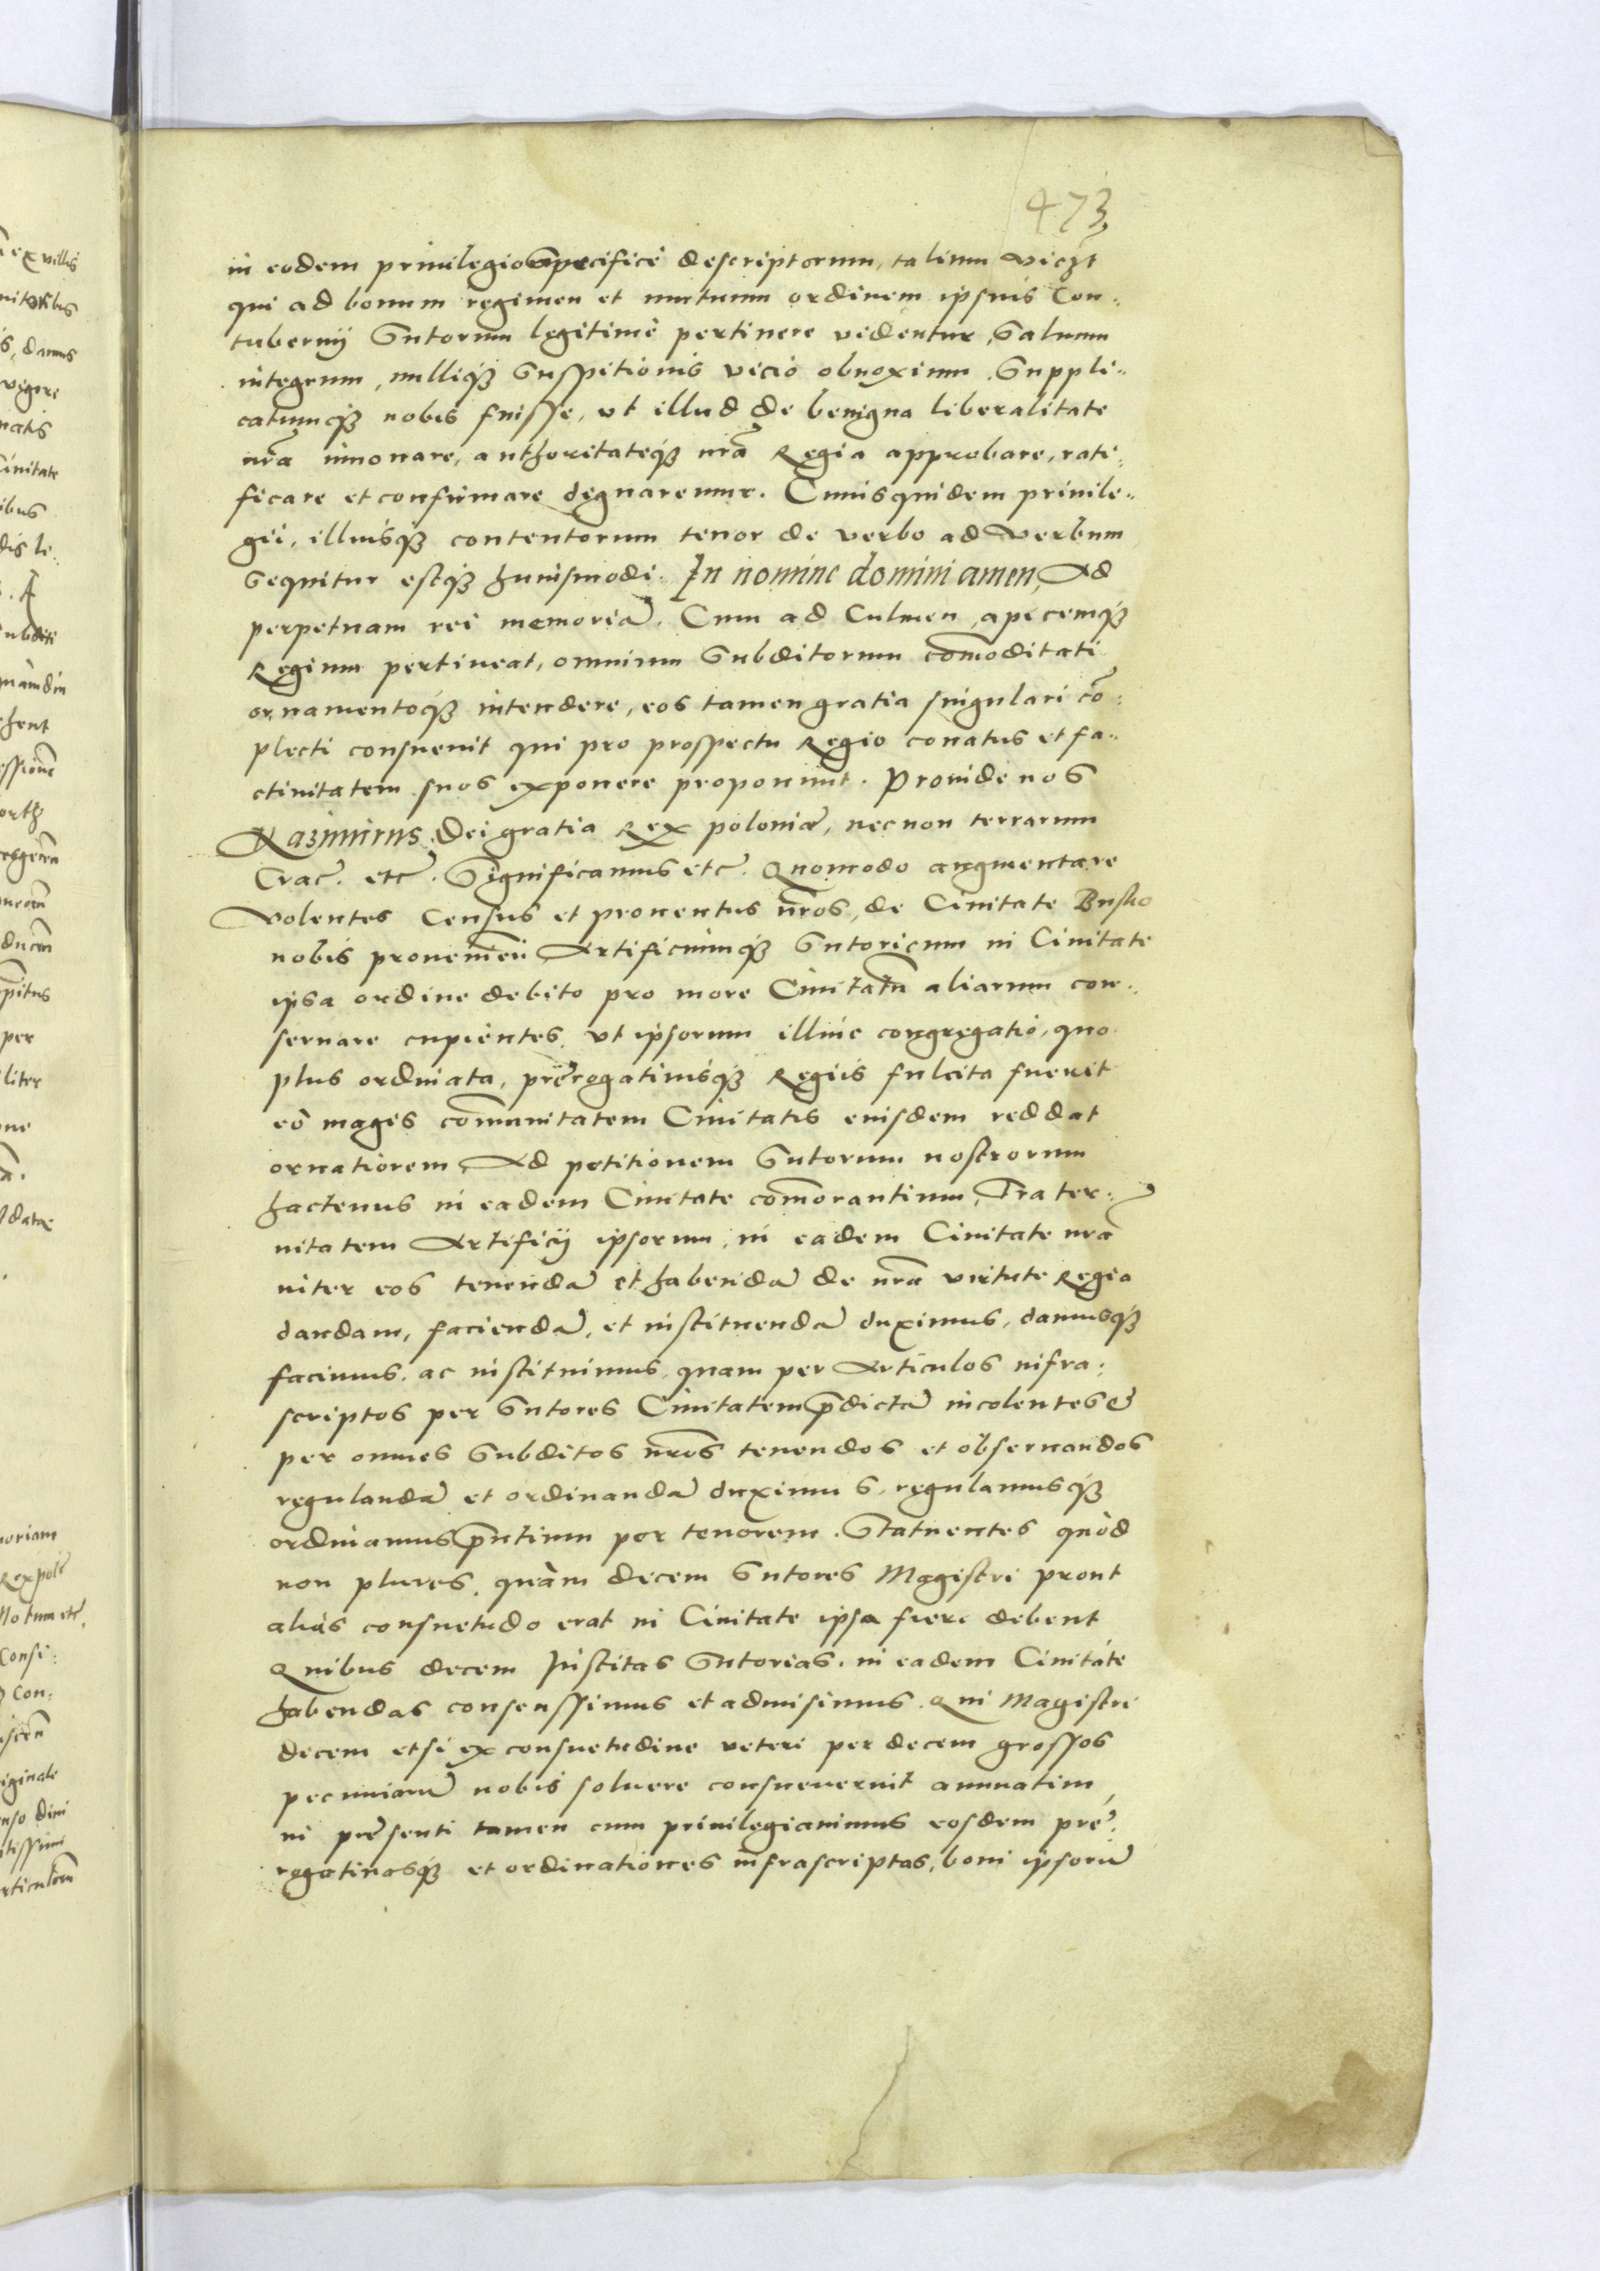 473
in eodem priuilegio specifice descriptorum, talium viczt
qui ad bonum regimen et mutuum ordinem ipsius Con:
tubernij Sutorum legitimè pertinere videntur, Saluum
integrum, nulliqȝ Suspitionis vicio obnoxium. Suppli:
catumqȝ nobis fuisse, vt illud de benigna liberalitate
nrã innouare, authoritateqȝ nrã Regia approbare, rati:
ficare et confirmare dignaremur. Cuius quidem priuile:
gii, illiusqȝ contentorum tenor de verbo ad verbum
sequitur estqȝ huiusmodi. In nomine domini amen, Ad
perpetuam rei memoriã. Cum ad Culmen, apicemqȝ
Regium pertineat, omnium Subditorum com̃oditati
ornamentoqȝ intendere, eos tamen gratia singulari cõ:
plecti consueuit qui pro prospectu Regio conatus et fa:
ctiuitatem suos exponere proponunt. Proinde nos
Kazimirus Dei gratia Rex poloniæ, necnon terrarum
Crac̃. etc̃. Significamus etc̃. Quomodo augmentare
volentes Census et prouentus nr̃os, de Ciuitate Busko
nobis prouenien̄ Artificiumqȝ Sutorium in Ciuitate
ipsa ordine debito pro more Ciuitatũ aliarum con:
seruare cupientes, vt ipsorum illuic congregatio, quo
plus ordinata, prærogatiuisqȝ Regiis fulcita fuerit
eò magis com̃unitatem Ciuitatis eiusdem reddat
ornatiorem, Ad petitionem Sutorum nostrorum
hactenus in eadem Ciuitate com̃orantium, Frater:
nitatem Artificij ipsorum, in eadem Ciuitate nrã
inter eos tenendã et habendã de nrã virtute Regia
dandam, faciendã, et instituendã duximus, damusqȝ
facimus, ac instituimus, quam per Articulos infra:
scriptos per Sutores Ciuitatem p̃dictã incolentes &
per omnes Subditos nr̃os tenendos et obseruandos
regulandã et ordinandã duximus, regulamusqȝ
ordinamus p̃ntium per tenorem. Statuentes quòd
non plures, quàm decem Sutores Magistri prout
aliàs consuetudo erat in Ciuitate ipsa fieri debent
Quibus decem Institas Sutorias, in eadem Ciuitate
habendas consenssimus et admisimus. Qui Magistri
decem etsi ex consuetudine veteri per decem grossos
pecuniarũ nobis soluere consueuerint annuatim,
in præsenti tamen cum priuilegiauimus eosdem præ:
rogatiuasqȝ et ordinationes infrascriptas, boni ipsorũ